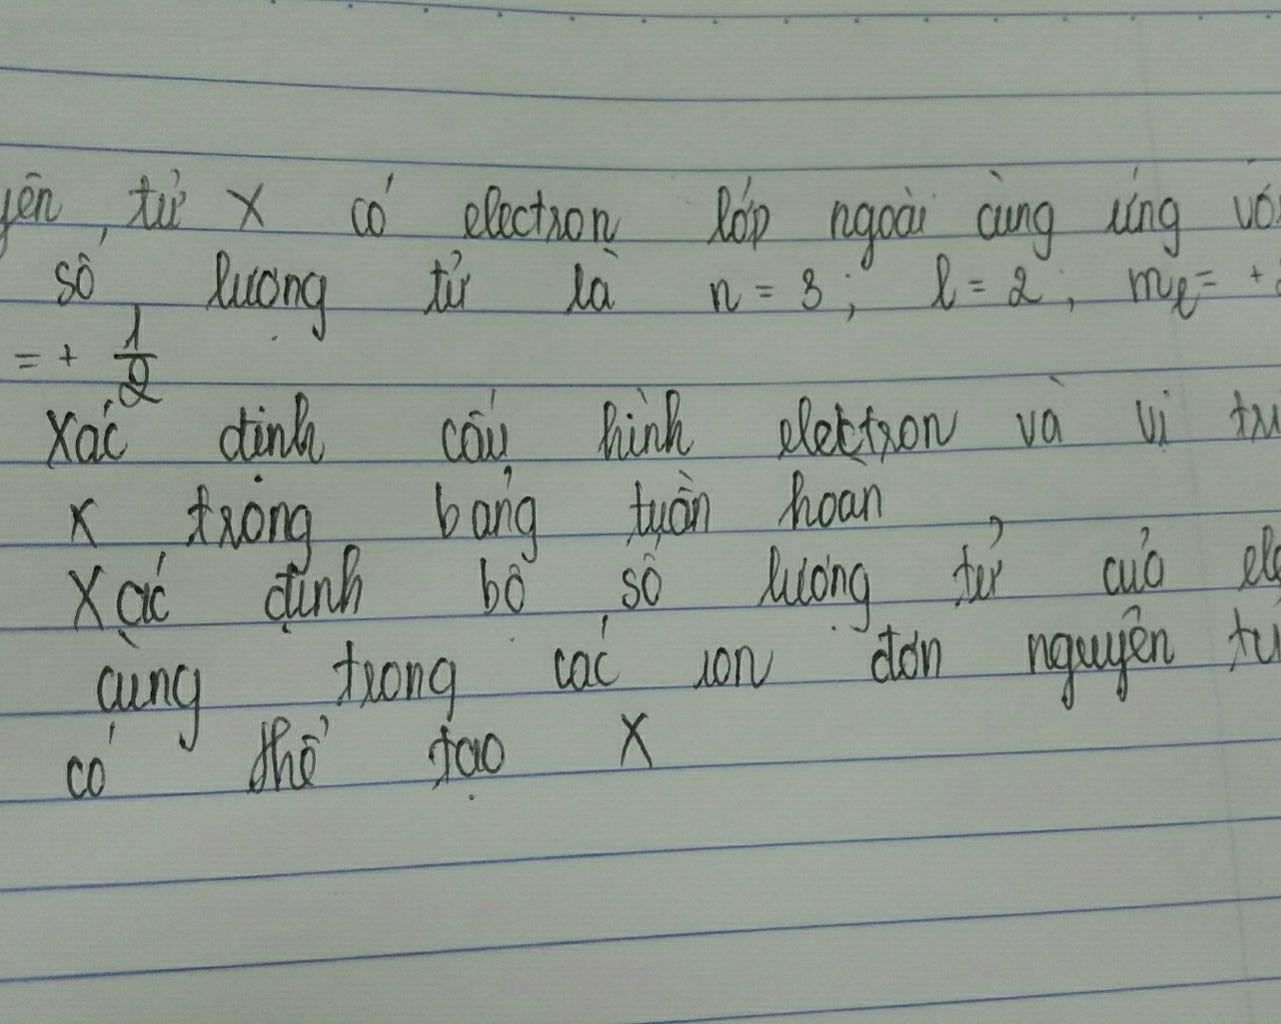 yên tử X có electron lớp ngoài cùng ứng với
số lượng tử là n = 3; l = 2, mₗ = +
= + 1/2
Xác định cấu hình electron và vị
X trong bảng tuần hoàn
Xác định bộ số lượng tử của
cùng trong các ion đơn nguyên tử
có thể tạo X